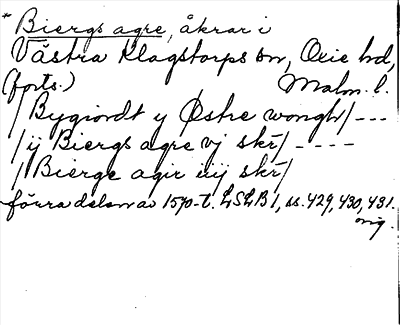 * Biergs agre, åkrar i
Västra Klagstorps sn, Oxie hd,
(forts.) Malm. l.
/Bygiordt y Østre wongh/---
/ij Biergs agre vj skr̄/----
/Bierge agir iiij skr̄/
förra delen av 1570-t. LSLB1, ss. 429, 430, 431.
orig.